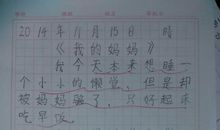 2014年11月15日 晴
《我的妈妈》
我今天本来想睡一
个小小的懒觉，但是却
被妈妈骂了，只好起床
吃早饭。